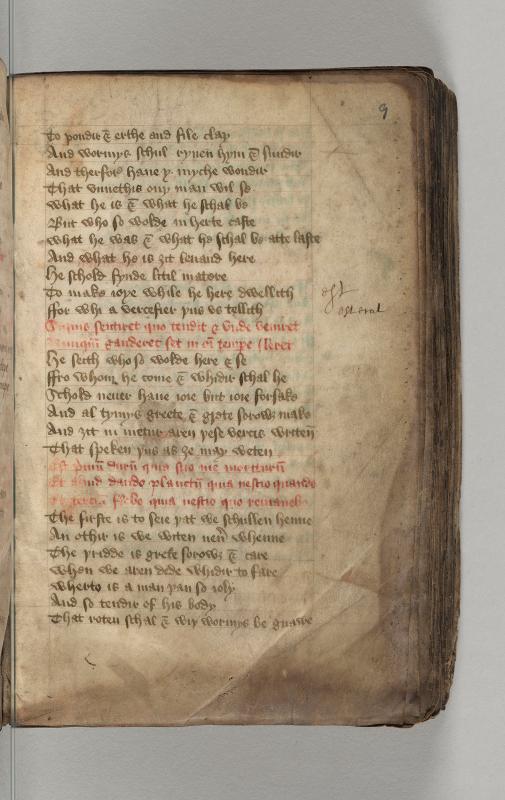 9
To poudir & erthe and file clay
And wormys schul ryuen hym & sundir
And therfore haue y myche wondir
That vnnethis ony man wil se
What he is & what he schal be
But who so wolde in herte caste
What he was & what he schal be atte laste
And what he is ȝit leuand here
He schold fynde litil matere
To make ioye while he here dwellith
ffor whi a vercefier þus vs tellith
sentiret quo tendit & vnde veniret
gauderet set in omni tempore fleret
He seith who so wolde here & se
ffro whom he come & whidir schal he
Schold neuer haue ioie but ioie forsake
And al tymys greete & grete sorowȝ make
And ȝit in metur aren þese vercis writen
That speken þus as ȝe may weten
Est primum durum quia scio me moriturum
Et aliud dando planctum quia nescio quando
flebo quia nescio quo
The firste is to seie þat we schullen henne
An othir is we witen neuer whenne
The þridde is grete sorowȝ & care
When we aren dede whidir to fare
Wherto is a man þan so ioly
And so tendir of his body
That roten schal & wiþ wormys be gnawe